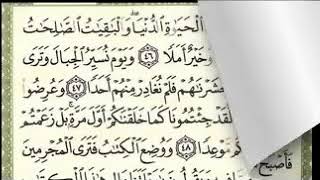 الْحَيَوٰةِ الدُّنْيَا ۖ وَالْبَٰقِيَٰتُ الصَّٰلِحَٰتُ
وَخَيْرٌ أَمَلًا ٤٦ وَيَوْمَ نُسَيِّرُ الْجِبَالَ وَتَرَى
وَحَشَرْنَٰهُمْ فَلَمْ نُغَادِرْ مِنْهُمْ أَحَدًا ٤٧ وَعُرِضُوا
لَّقَدْ جِئْتُمُونَا كَمَا خَلَقْنَٰكُمْ أَوَّلَ مَرَّةٍ ۚ بَلْ زَعَمْتُمْ
مَّوْعِدًا ٤٨ وَوُضِعَ الْكِتَٰبُ فَتَرَى الْمُجْرِمِينَ
فَأَصْبَحَ